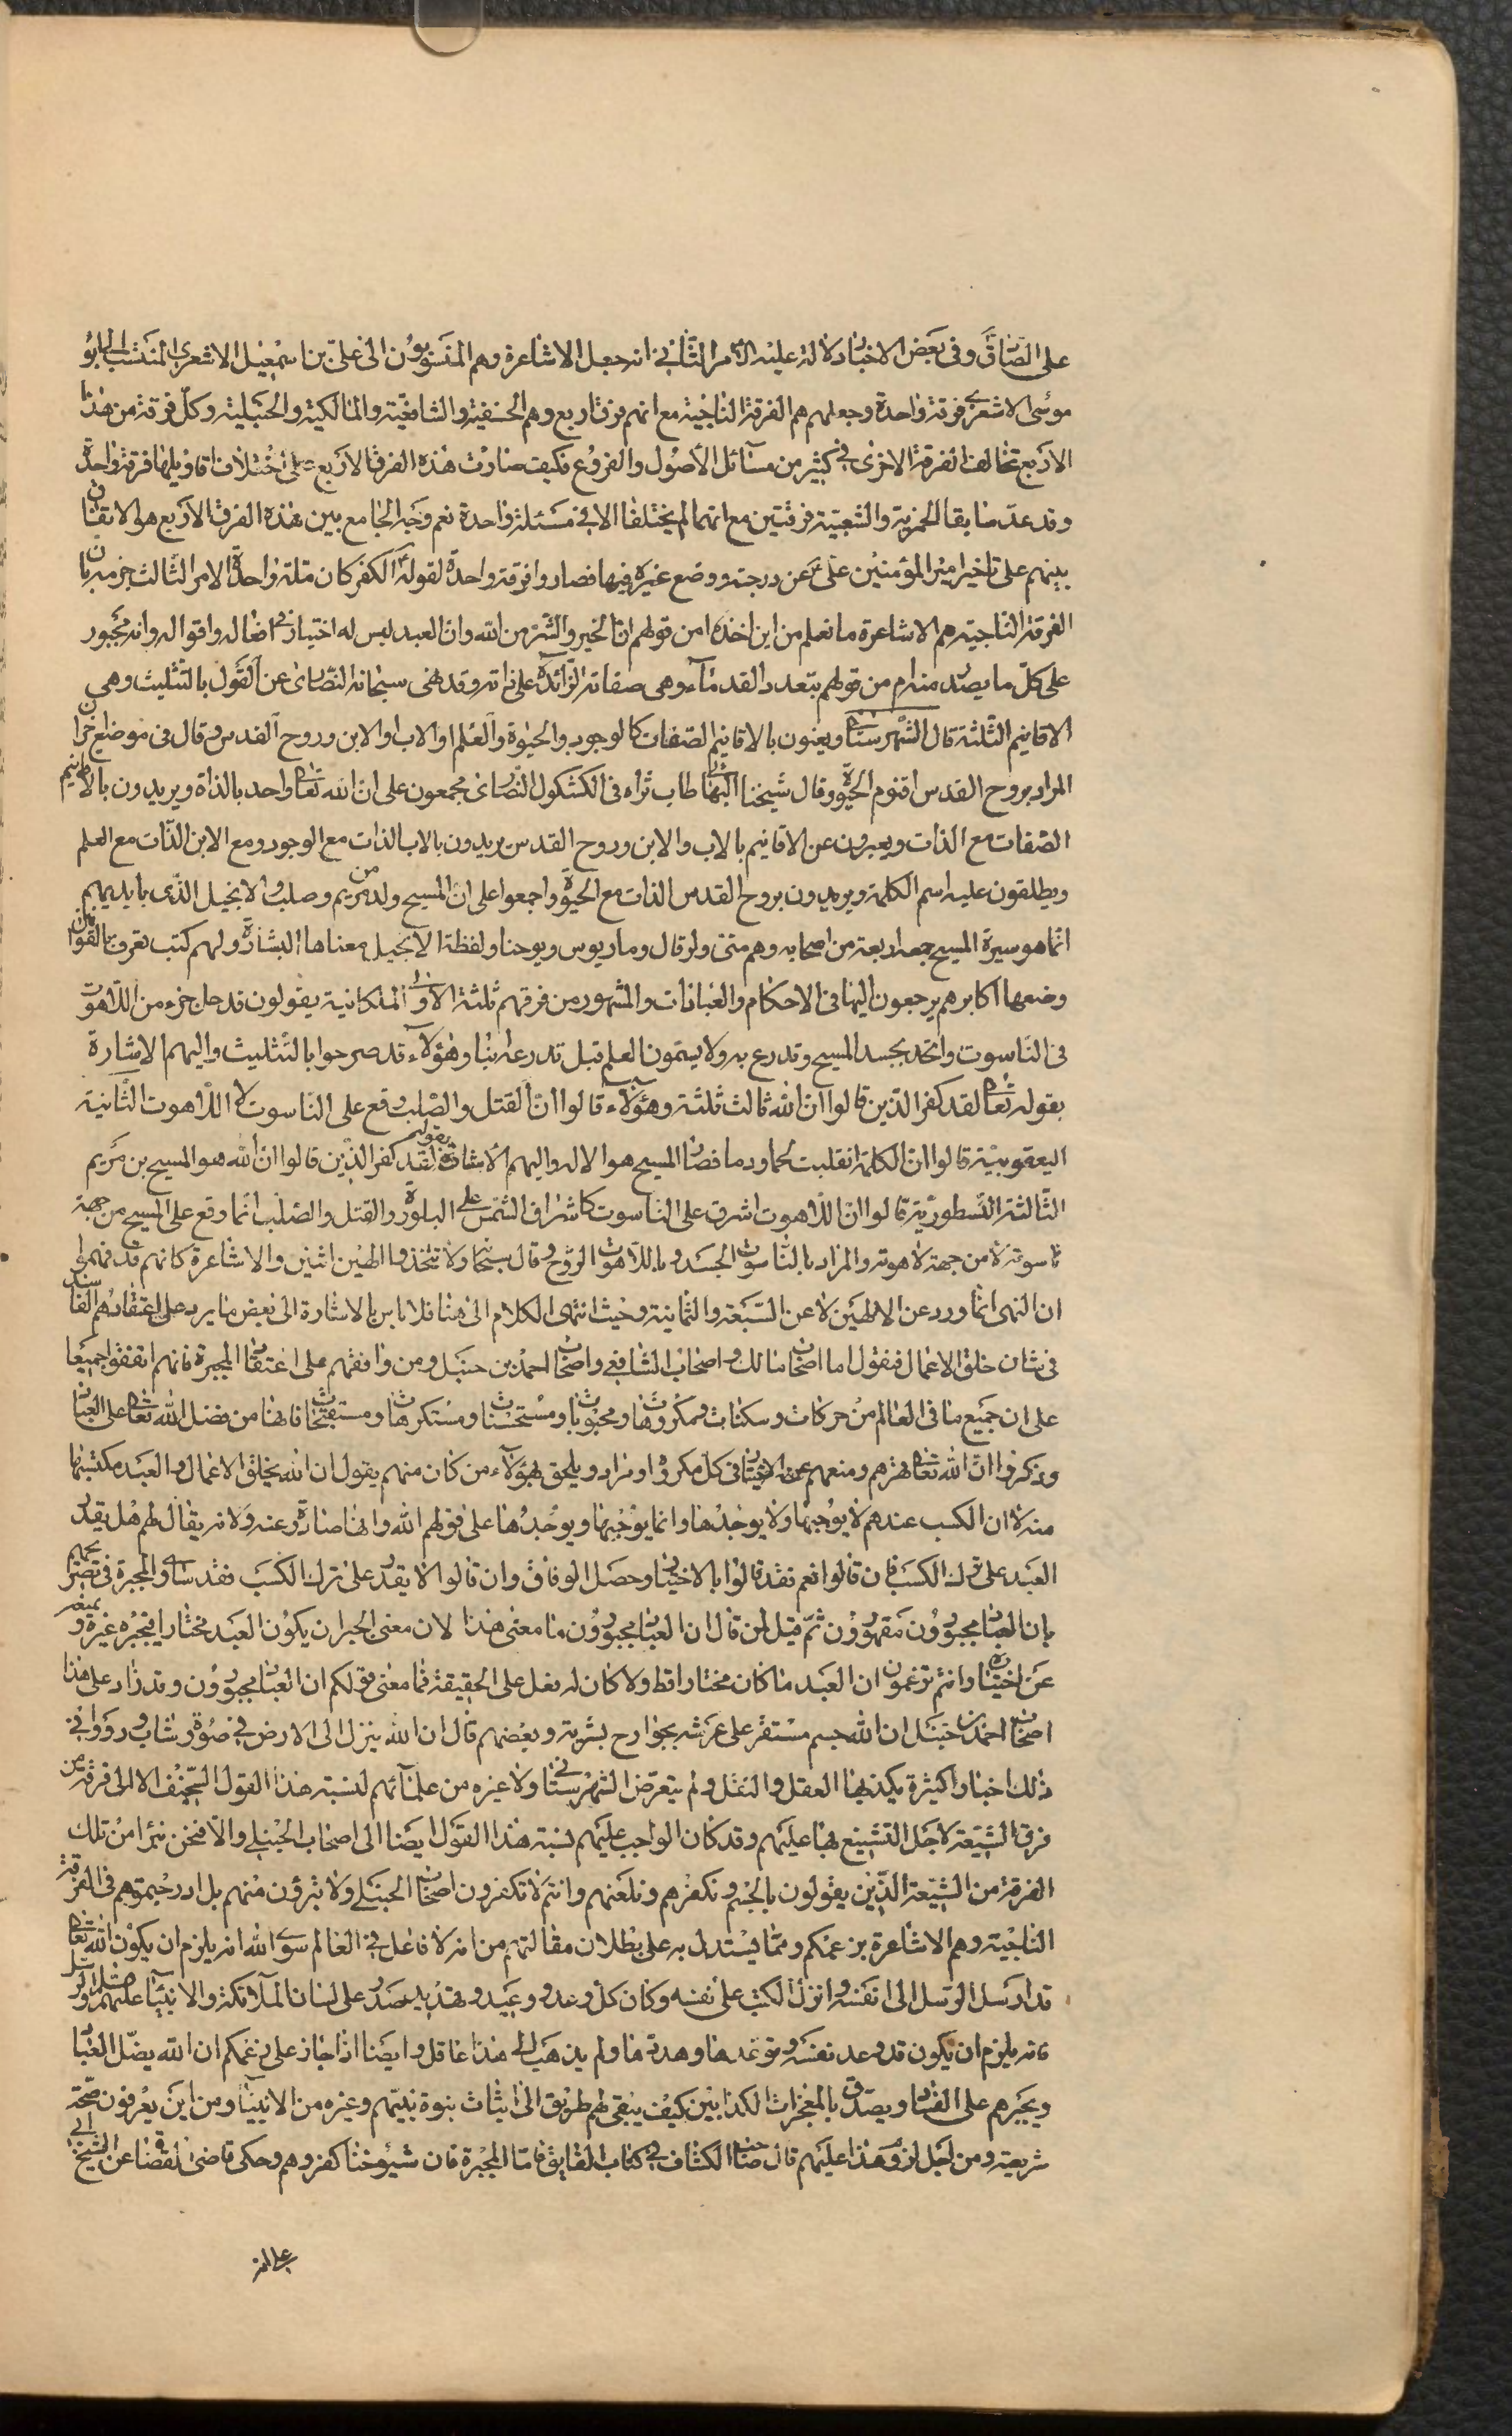 على الصّادق وفى بعض الاخبار دلالة عليه الامر الثّانى انه جعل الاشاعرة وهم المنسوبون الى علىّ بن اسمعيل الاشعرى المنتسب الى ابو
موسى الاشعرى فرقة واحدة وجعلهم هم الفرقة الناجية مع انهم فرق اربع وهم الحنفية والشافعيّة والمالكية والحنبلية وكلّ فرقة من هذا
الاربع تخالف الفرقة الاخرى فى كثير من مسائل الأصول والفروع فكيف صارت هذه الفرق الاربع على اختلاف اقاويلها فرقة واحدة
وقد عدّ سابقا الحمزية والشعيبيّة فرقتين مع انهما لم يختلفا الا فى مسئلة واحدة نعم وجه الجامع بين هذه الفرق الاربع هو الاتفاق
بينهم على تاخير امير المؤمنين علىّ عن درجته ووضع غيره فيها فصاروا فرقة واحدة لقوله الكفر كان ملة واحدة الامر الثالث جزمه بان
الفرقة النّاجية هم الاشاعرة ما نعلم من اين اخذه امن قولهم ان الخير والشر من الله وان العبد ليس له اختيار فى افعاله واقواله وانه مجبور
على كلّ ما يصدر منه ام من قولهم بتعدد القدماء وهى صفاته الزّائدة على ذاته وقد نهى سبحانه النّصارى عن القول بالتّثليث وهى
الاقانيم الثّلثة قال الشّهرستانى ويعنون بالاقانيم الصّفات كالوجود والحيوة والعلم او الاب والابن وروح القدس وقال فى موضع اخر ان
المراد بروح القدس اقنوم الحيوة وقال شيخنا البهائى طاب ثراه فى الكشكول النّصارى مجمعون على انّ الله تعالى واحد بالذّاة ويريدون بالاقانيم
الصّفات مع الذات ويعبرون عن الاقانيم بالاب والابن وروح القدس يريدون بالاب الذات مع الوجود ومع الابن الذّات مع العلم
ويطلقون عليه اسم الكلمة ويريدون بروح القدس الذات مع الحيوة واجمعوا على ان المسيح ولد من مريم وصلب والانجيل الذّى بايديهم
انّما هو سيرة المسيح جمعه اربعة من اصحابه وهم متى ولوقال وماريوس ويوحنا ولفظة الانجيل معناها البشارة ولهم كتب تعرف بالقوانين
وضعها اكابرهم يرجعون اليها فى الاحكام والعبادات والمشهور من فرقهم ثلثة الاولى الملكانية يقولون قد حل جزء من اللّاهوت
فى النّاسوت واتّحد بجسد المسيح وتدرع به ولا يسمّون العلم قبل تدرعه ابنا وهؤلاء قد صرحوا بالتّثليث واليهم الاشارة
بقوله تعالى لقد كفر الذّين قالوا انّ الله ثالث ثلثة وهؤلاء قالوا انّ القتل والصّلب وقع على النّاسوت لا اللّاهوت الثّانية
اليعقوبيّة قالوا ان الكلمة انقلبت لحما ودما فصار المسيح هو الاله واليهم الاشارة بقوله لقد كفر الذّين قالوا ان الله هو المسيح بن مريم
الثّالثة النّسطوريّة قالوا انّ اللّاهوت اشرق على الناسوت كاشراق الشمس على البلورة والقتل والصّلب انّما وقع على المسيح من جهة
ناسوته لا من جهة لاهوته والمراد بالنّاسوت الجسد وباللّاهوت الرّوح وقال سبحانه ولا تتّخذوا الهين اثنين والاشاعرة كانهم قد فهموا
ان النهى انّما ورد عن الالهين لا عن السّبعة والثمانية وحيث انتهى الكلام الى هنا فلا باس بالاشارة الى بعض ما يرد على اعتقادهم الفاسد
فى شان خلق الاعمال فنقول اما اصحاب مالك واصحاب الشافعى واصحاب احمد بن حنبل ومن وافقهم على اعتقاد المجبرة فانهم اتفقوا جميعا
على ان جميع ما فى العالم من حركات وسكنات ومكروهات ومحبوبات ومستحسنات ومستكرهات ومستقبحات فانها من فضل الله تعالى على العباد
وذكروا انّ الله تعالى قهرهم ومنعهم عن الاختيار فى كل مكروه او مراد ويلحق بهؤلاء من كان منهم يقول ان الله يخلق الاعمال والعبد مكتسبها
منه لان الكسب عندهم لا يوجبها ولا يوجدها وانما يوجبها ويوجدها على قولهم الله وانها صادرة عنه ولانه يقال لهم هل يقدر
العبد على ترك الكسب فان قالوا نعم فقد قالوا بالاختيار وحصل الوفاق وان قالوا لا يقدر على ترك الكسب فقد ساوى المجبرة فى تصريحهم
بان العباد مجبورون مقهورون ثمّ قيل لمن قال ان العباد مجبورون ما معنى هذا لان معنى الجبر ان يكون العبد مختارا فيجبره غيره ويمنعه
عن اختياره وانتم تزعمون ان العبد ما كان مختارا قط ولا كان له فعل على الحقيقة فما معنى قولكم ان العباد مجبورون وقد زاد على هذا
اصحاب احمد بن حنبل ان الله جسم مستقر على عرشه بجوارح بشرية وبعضهم قال ان الله ينزل الى الارض فى صورة شاب ورووا فى
ذلك اخبارا كثيرة يكذبها العقل والنقل ولم يتعرّض الشهرستانى ولا غيره من علمائهم لنسبة هذا القول السّخيف الا الى فرقة من
فرق الشيعة لاجل التشنيع بها عليهم وقد كان الواجب عليهم نسبة هذا القول ايضا الى اصحاب الحنبلى والا فنحن نبرا من تلك
الفرقة من الشيعة الذّين يقولون بالجسم ونكفرهم ونلعنهم وانتم لا تكفرون اصحاب الحنبلى ولا تبرؤن منهم بل ادرجتموهم فى الفرقة
الناجية وهم الاشاعرة بزعمكم وممّا يستدل به على بطلان مقالتهم من انه لا فاعل فى العالم سوى الله انه يلزم ان يكون الله تعالى
قد ارسل الرّسل الى نفسه وانزل الكتب على نفسه وكان كل وعد ووعيد وتهديد صدر على لسان الملائكة والانبياء عليهم
فانه يلزم ان يكون قد وعد نفسه وتوعدها وهددها ولم يذهب الى هذا عاقل وايضا اذا جاز على زعمكم ان الله يضلّ العباد
ويجبرهم على الفساد ويصدّق بالمعجزات الكذابين كيف يبقى لهم طريق الى اثبات نبوة نبيّهم وغيره من الانبياء ومن اين يعرفون صحّة
شريعته ومن اجل لزوم هذا عليهم قال صاحب الكشاف فى كتاب الفايق فامّا المجبرة فان شيوخنا كفروهم وحكى قاضى القضاة عن الشيخ ابى